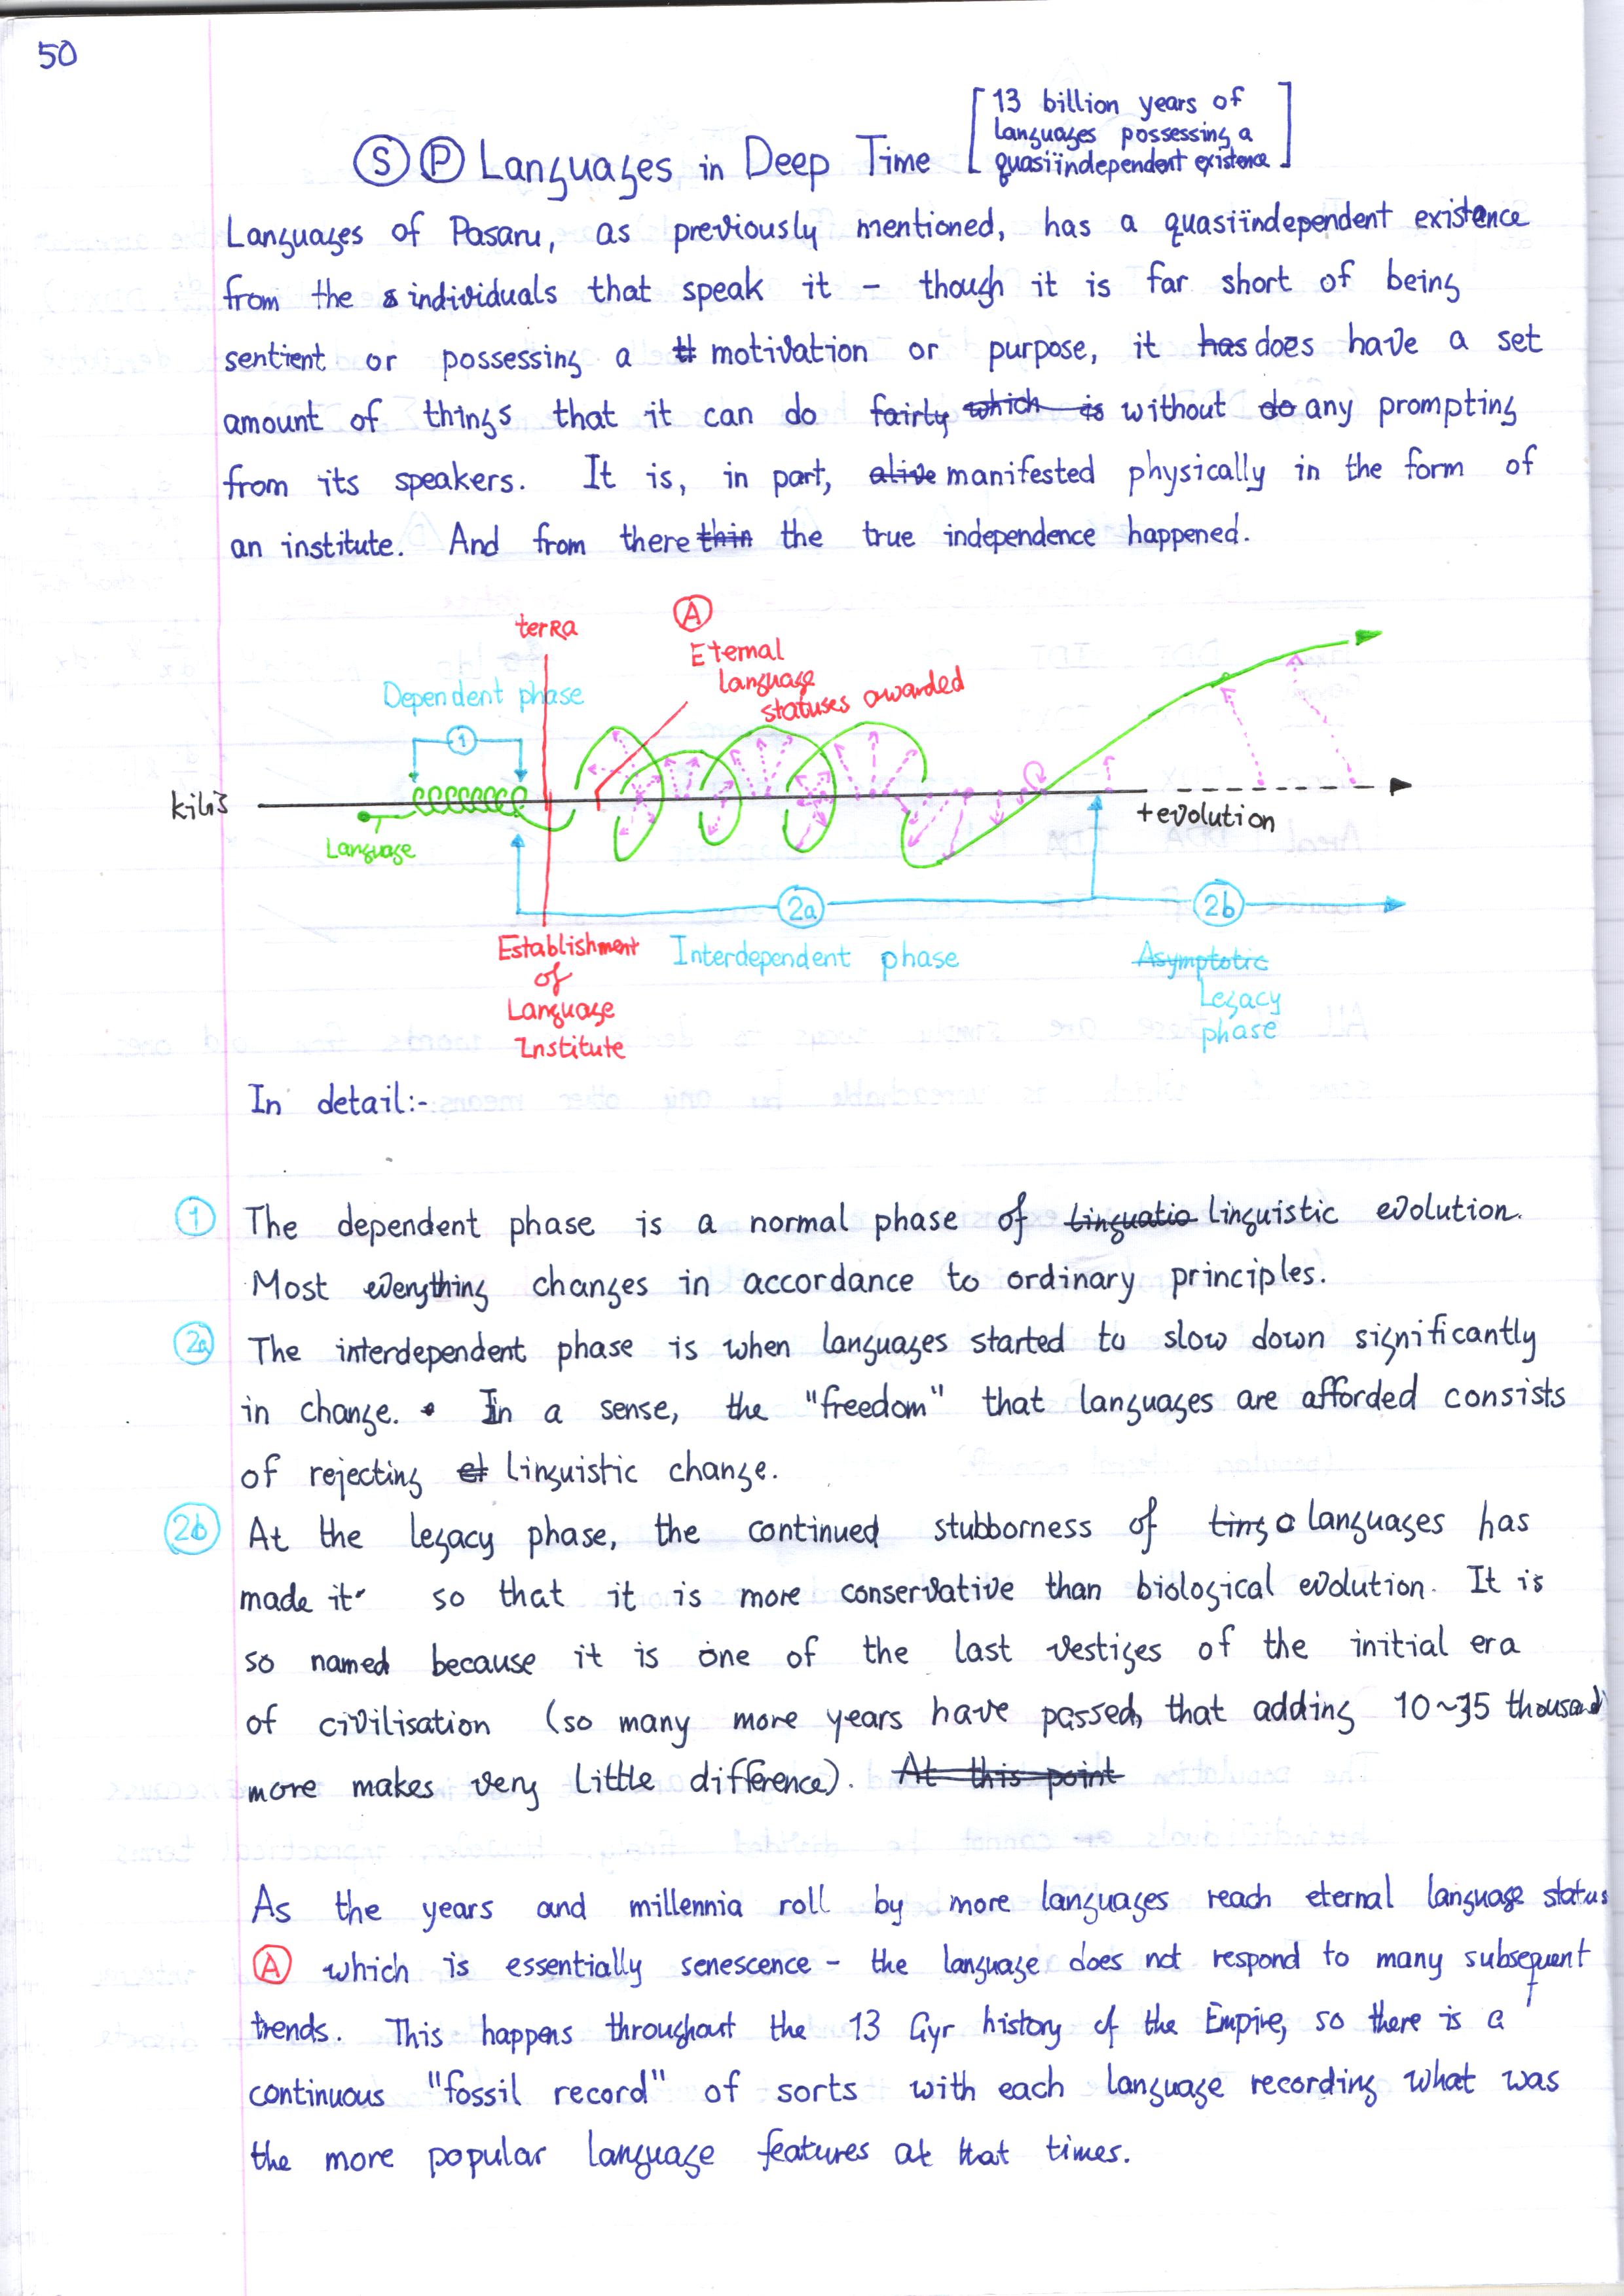 50
Ⓢ Ⓟ Languages in Deep Time
[13 billion years of
languages possessing a
quasiïndependent existence]
Languages of Pasaru, as previously mentioned, has a quasiïndependent existence
from the individuals that speak it – though it is far short of being
sentient or possessing a motivation or purpose, it has does have a set
amount of things that it can do fairly which is without do any prompting
from its speakers. It is, in part, alive manifested physically in the form of
an institute. And from there thin the true independence happened.
terra
Ⓐ
Eternal
language
statuses awarded
Dependent phase
①
+evolution
Language
2a
2b
Establishment
of
Language
Institute
Interdependent phase
Asymptotic
Legacy
phase
In detail:-
① The dependent phase is a normal phase of linguatic linguistic evolution.
Most everything changes in accordance to ordinary principles.
2a The interdependent phase is when languages started to slow down significantly
in change. In a sense, the "freedom" that languages are afforded consists
of rejecting linguistic change.
2b At the legacy phase, the continued stubborness of languages has
made it so that it is more conservative than biological evolution. It is
so named because it is one of the last vestiges of the initial era
of civilisation (so many more years have passed, that adding 10~35 thousand
more makes very little difference). At this point
As the years and millennia roll by more languages reach eternal language status
Ⓐ which is essentially senescence – the language does not respond to many subsequent
trends. This happens throughout the 13 Gyr history of the Empire, so there is a
continuous "fossil record" of sorts with each language recording what was
the more popular language features at that times.